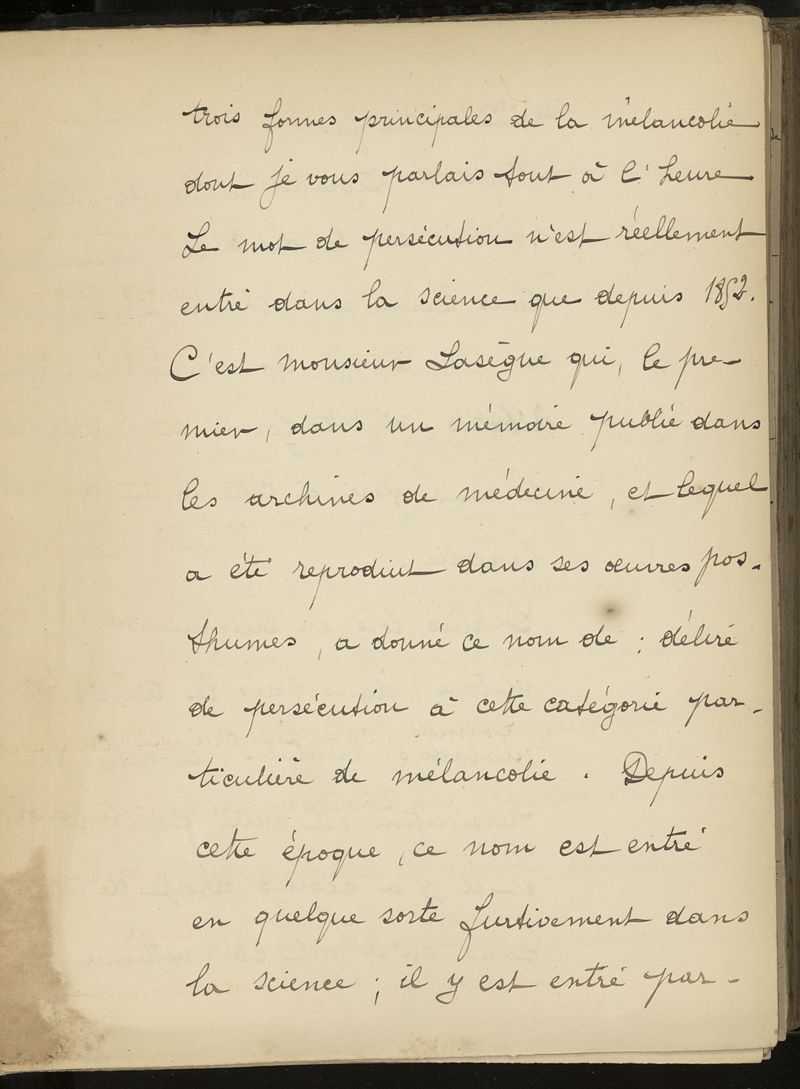 trois formes principales de la mélancolie
dont je vous parlais tout à l'heure
Le mot de persécution n'est réellement
entré dans la science que depuis 1852.
C'est monsieur Lasègue qui, le pre-
mier, dans un mémoire publié dans
les archives de médecine, et lequel
a été reproduit dans ses œuvres pos-
thumes, a donné ce nom de : délire
de persécution à cette catégorie par-
ticulière de mélancolie. Depuis
cette époque, ce nom est entré
en quelque sorte furtivement dans
la science ; il y est entré par-